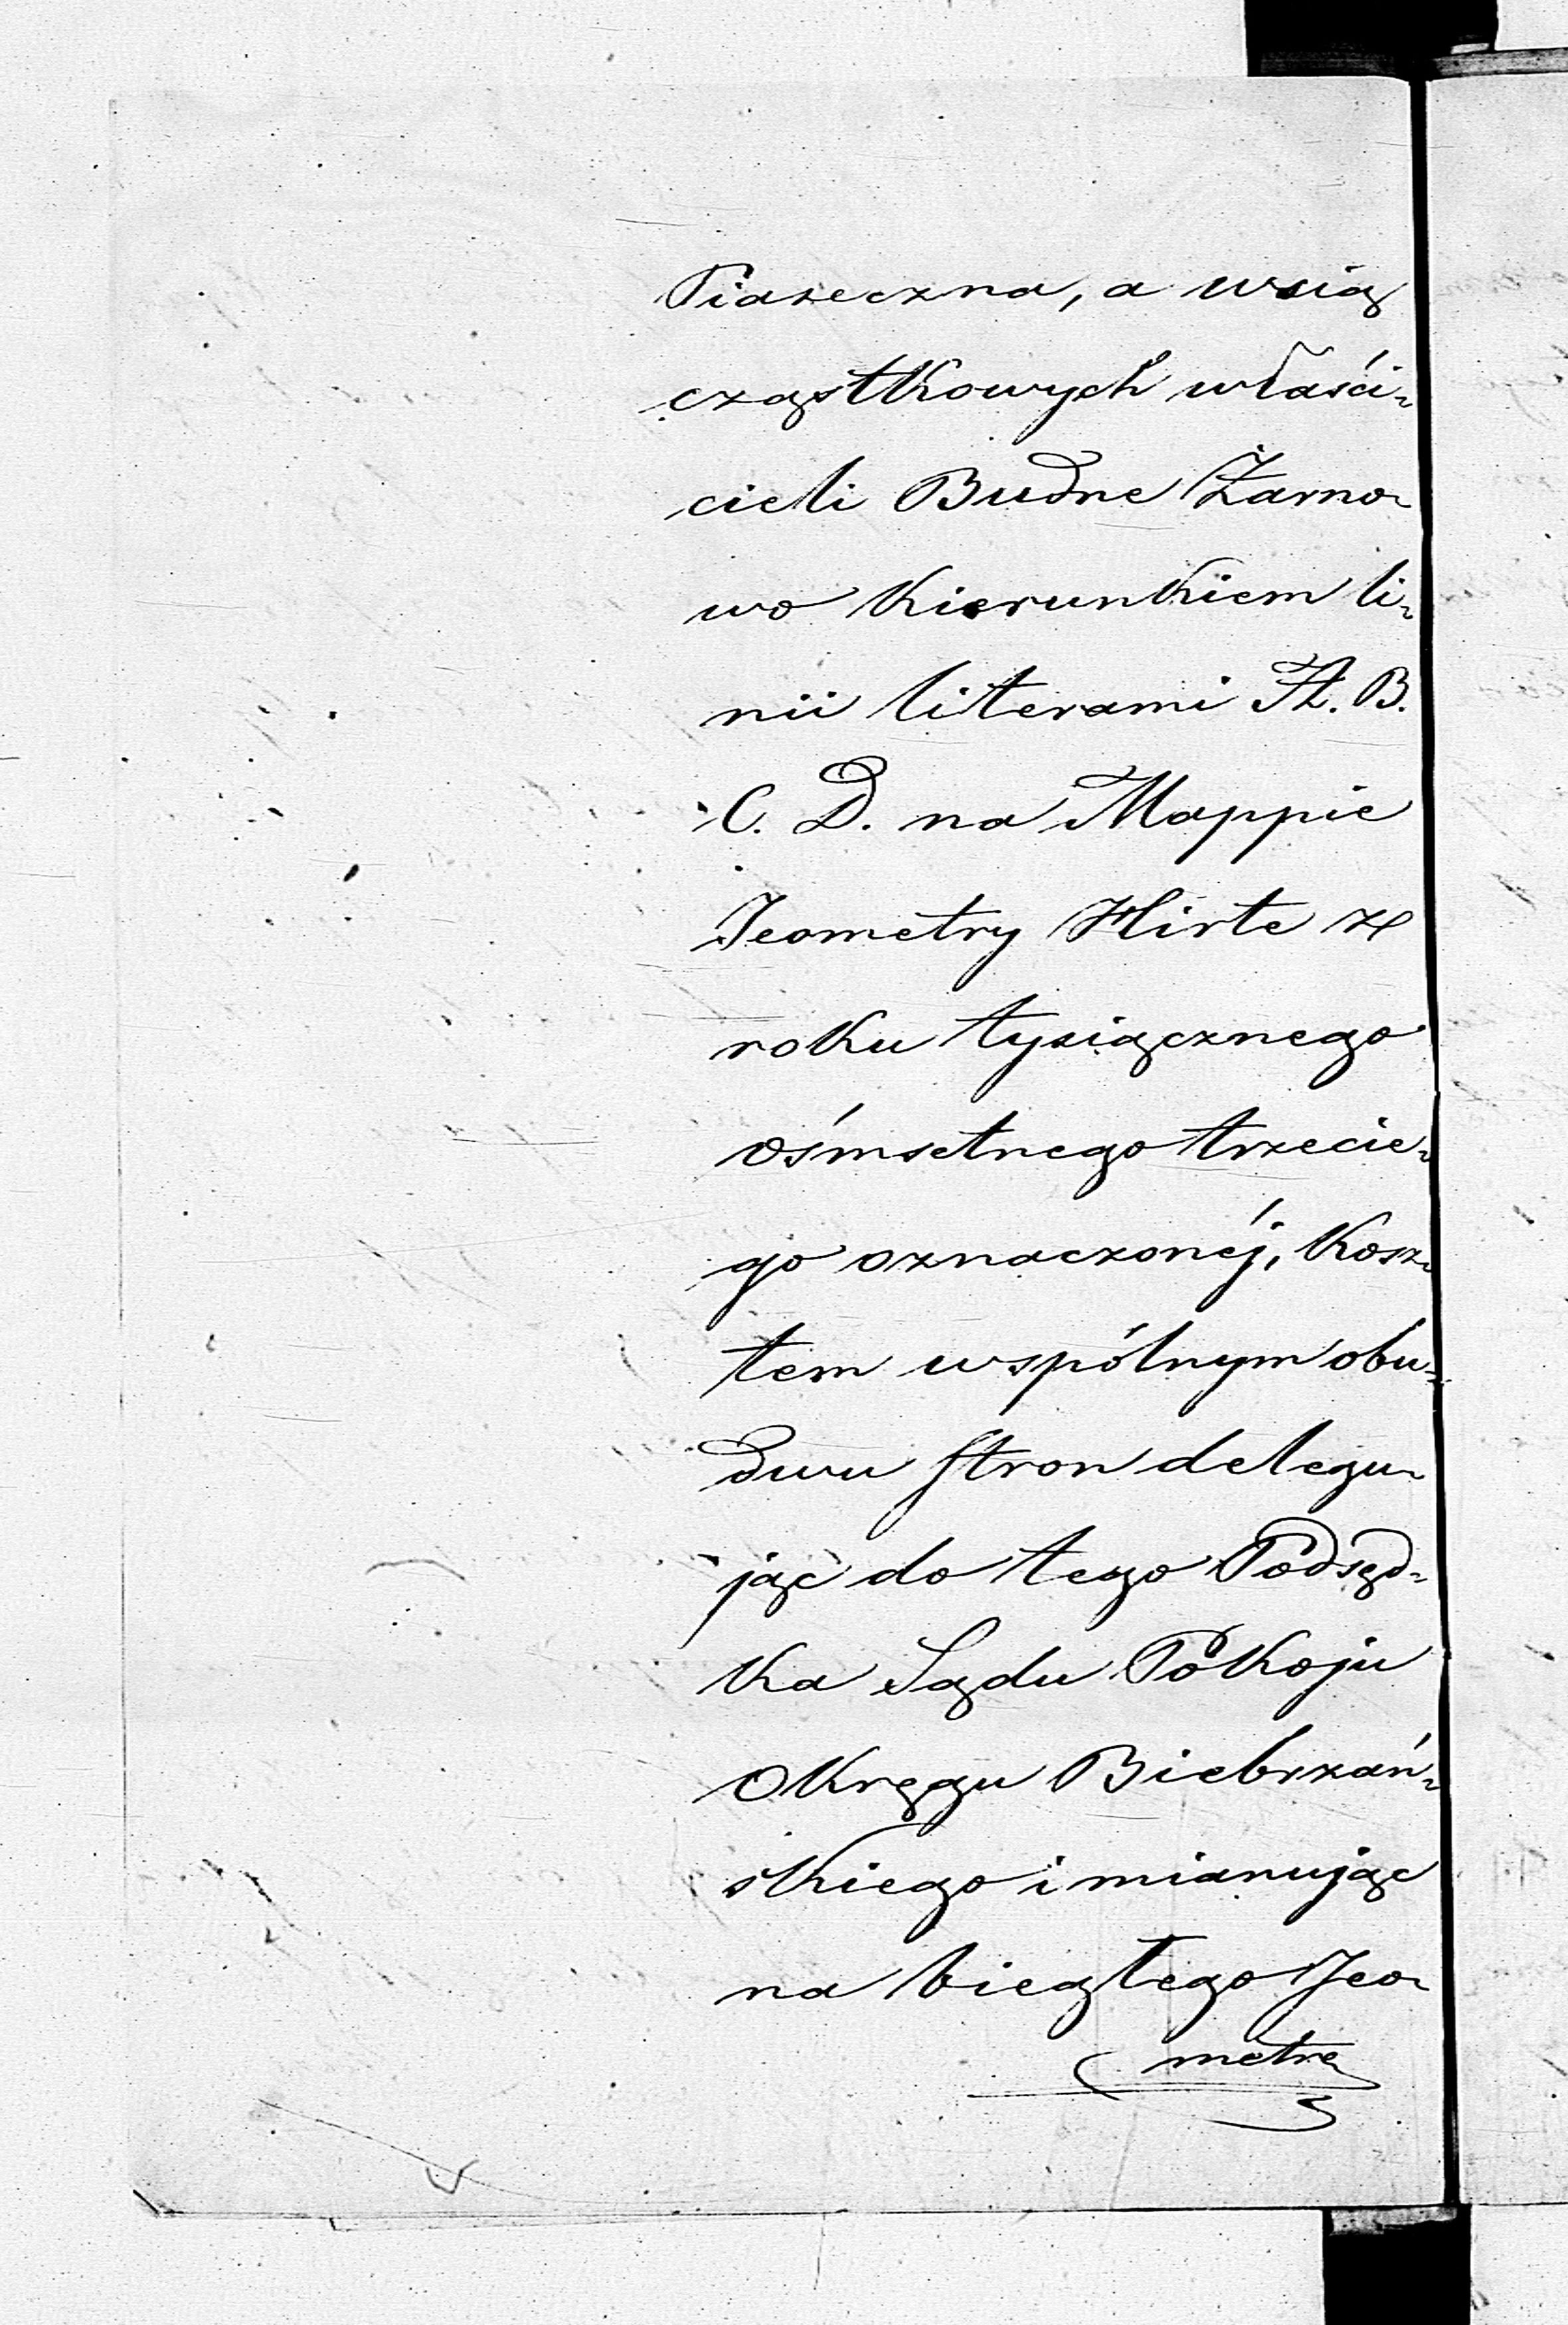 Piaseczna, a wsią
cząstkowych właści-
cieli Budne Żarno-
wo kierunkiem li-
nii literami A. B.
C. D. na Mappie
Jeometry Hirte z
roku tysiącznego
ośmsetnego trzecie-
go oznaczonéj, kosz-
tem wspólnym obu-
dwu stron delegu-
jąc do tego Podsęd-
ka Sądu Pokoju
Okręgu Biebrzań-
skiego i mianując
na biegłego Jeo-
metrę